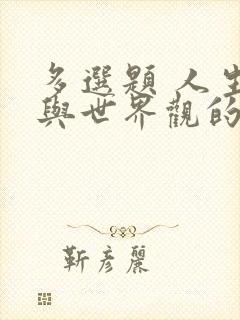 多選題 人生
與世界觀的
靳彥麗